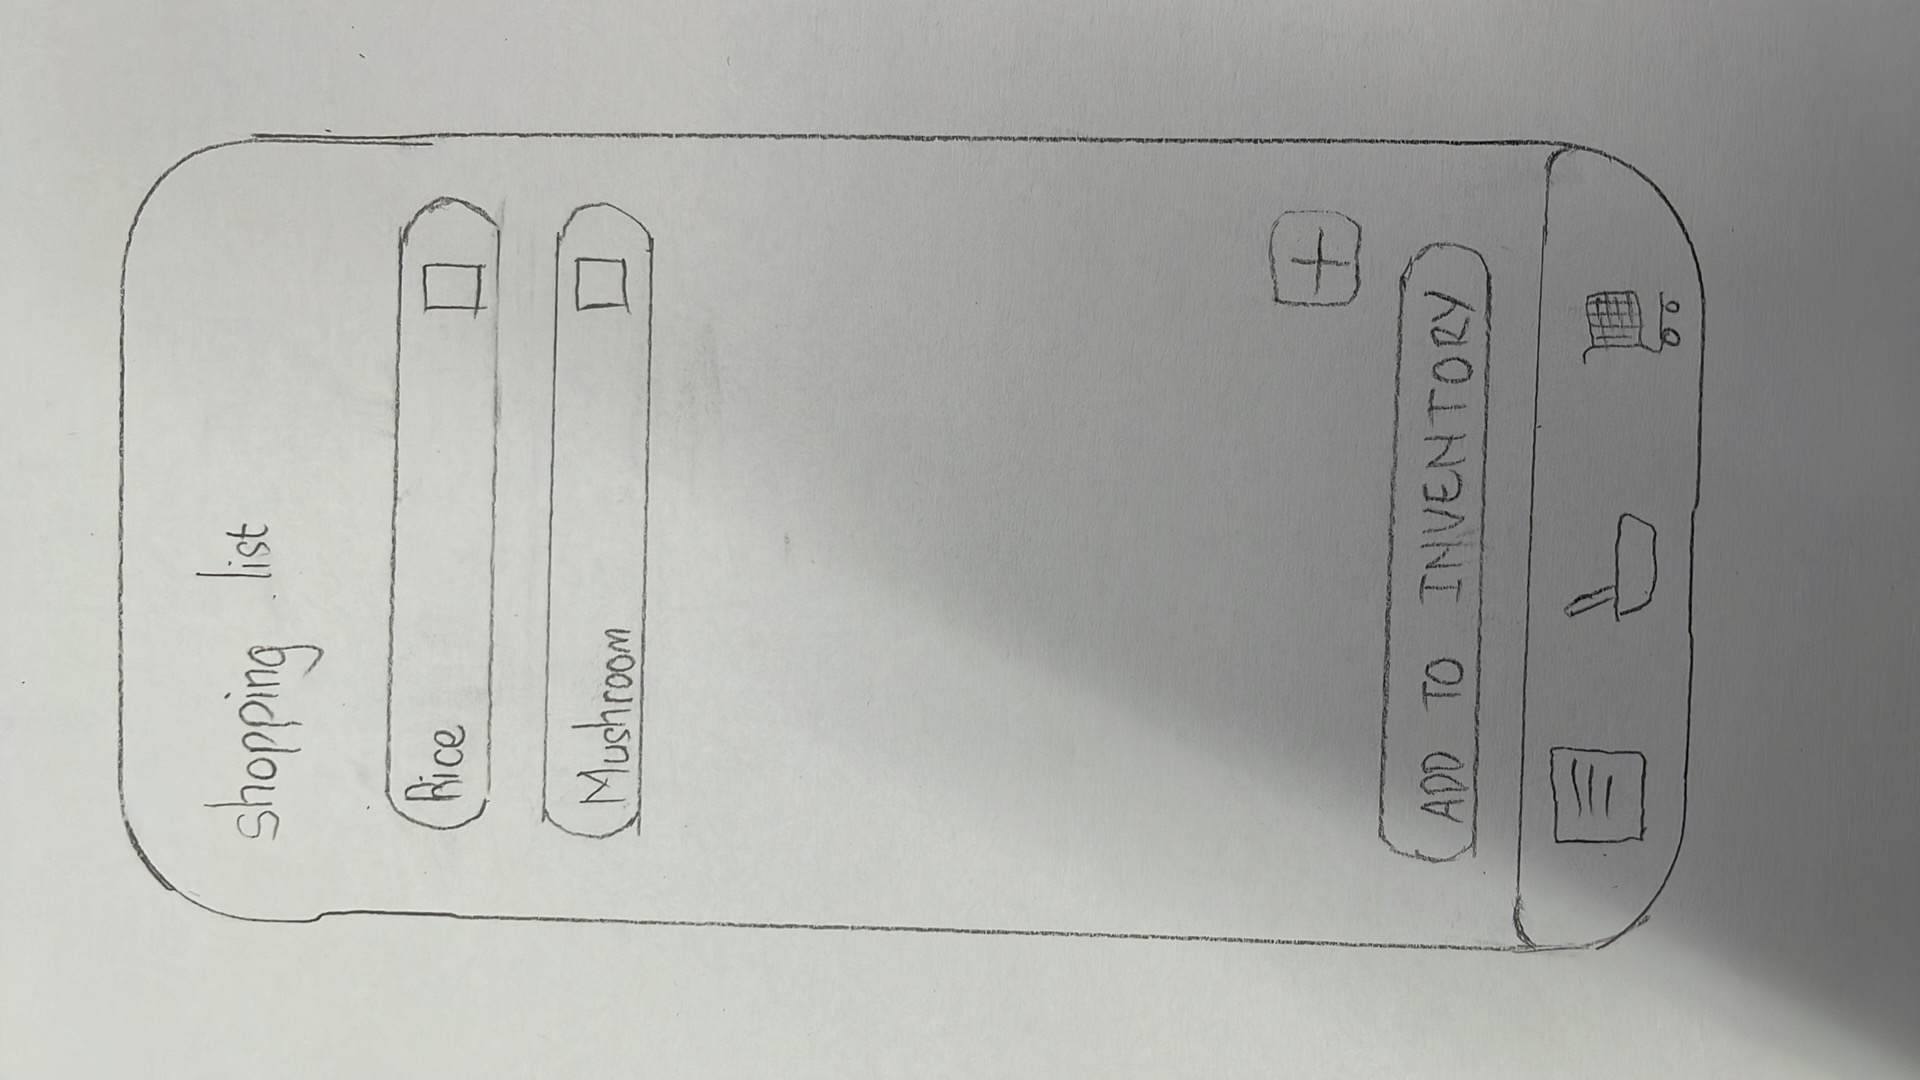 shopping list
Rice
Mushroom
+
ADD TO INVENTORY